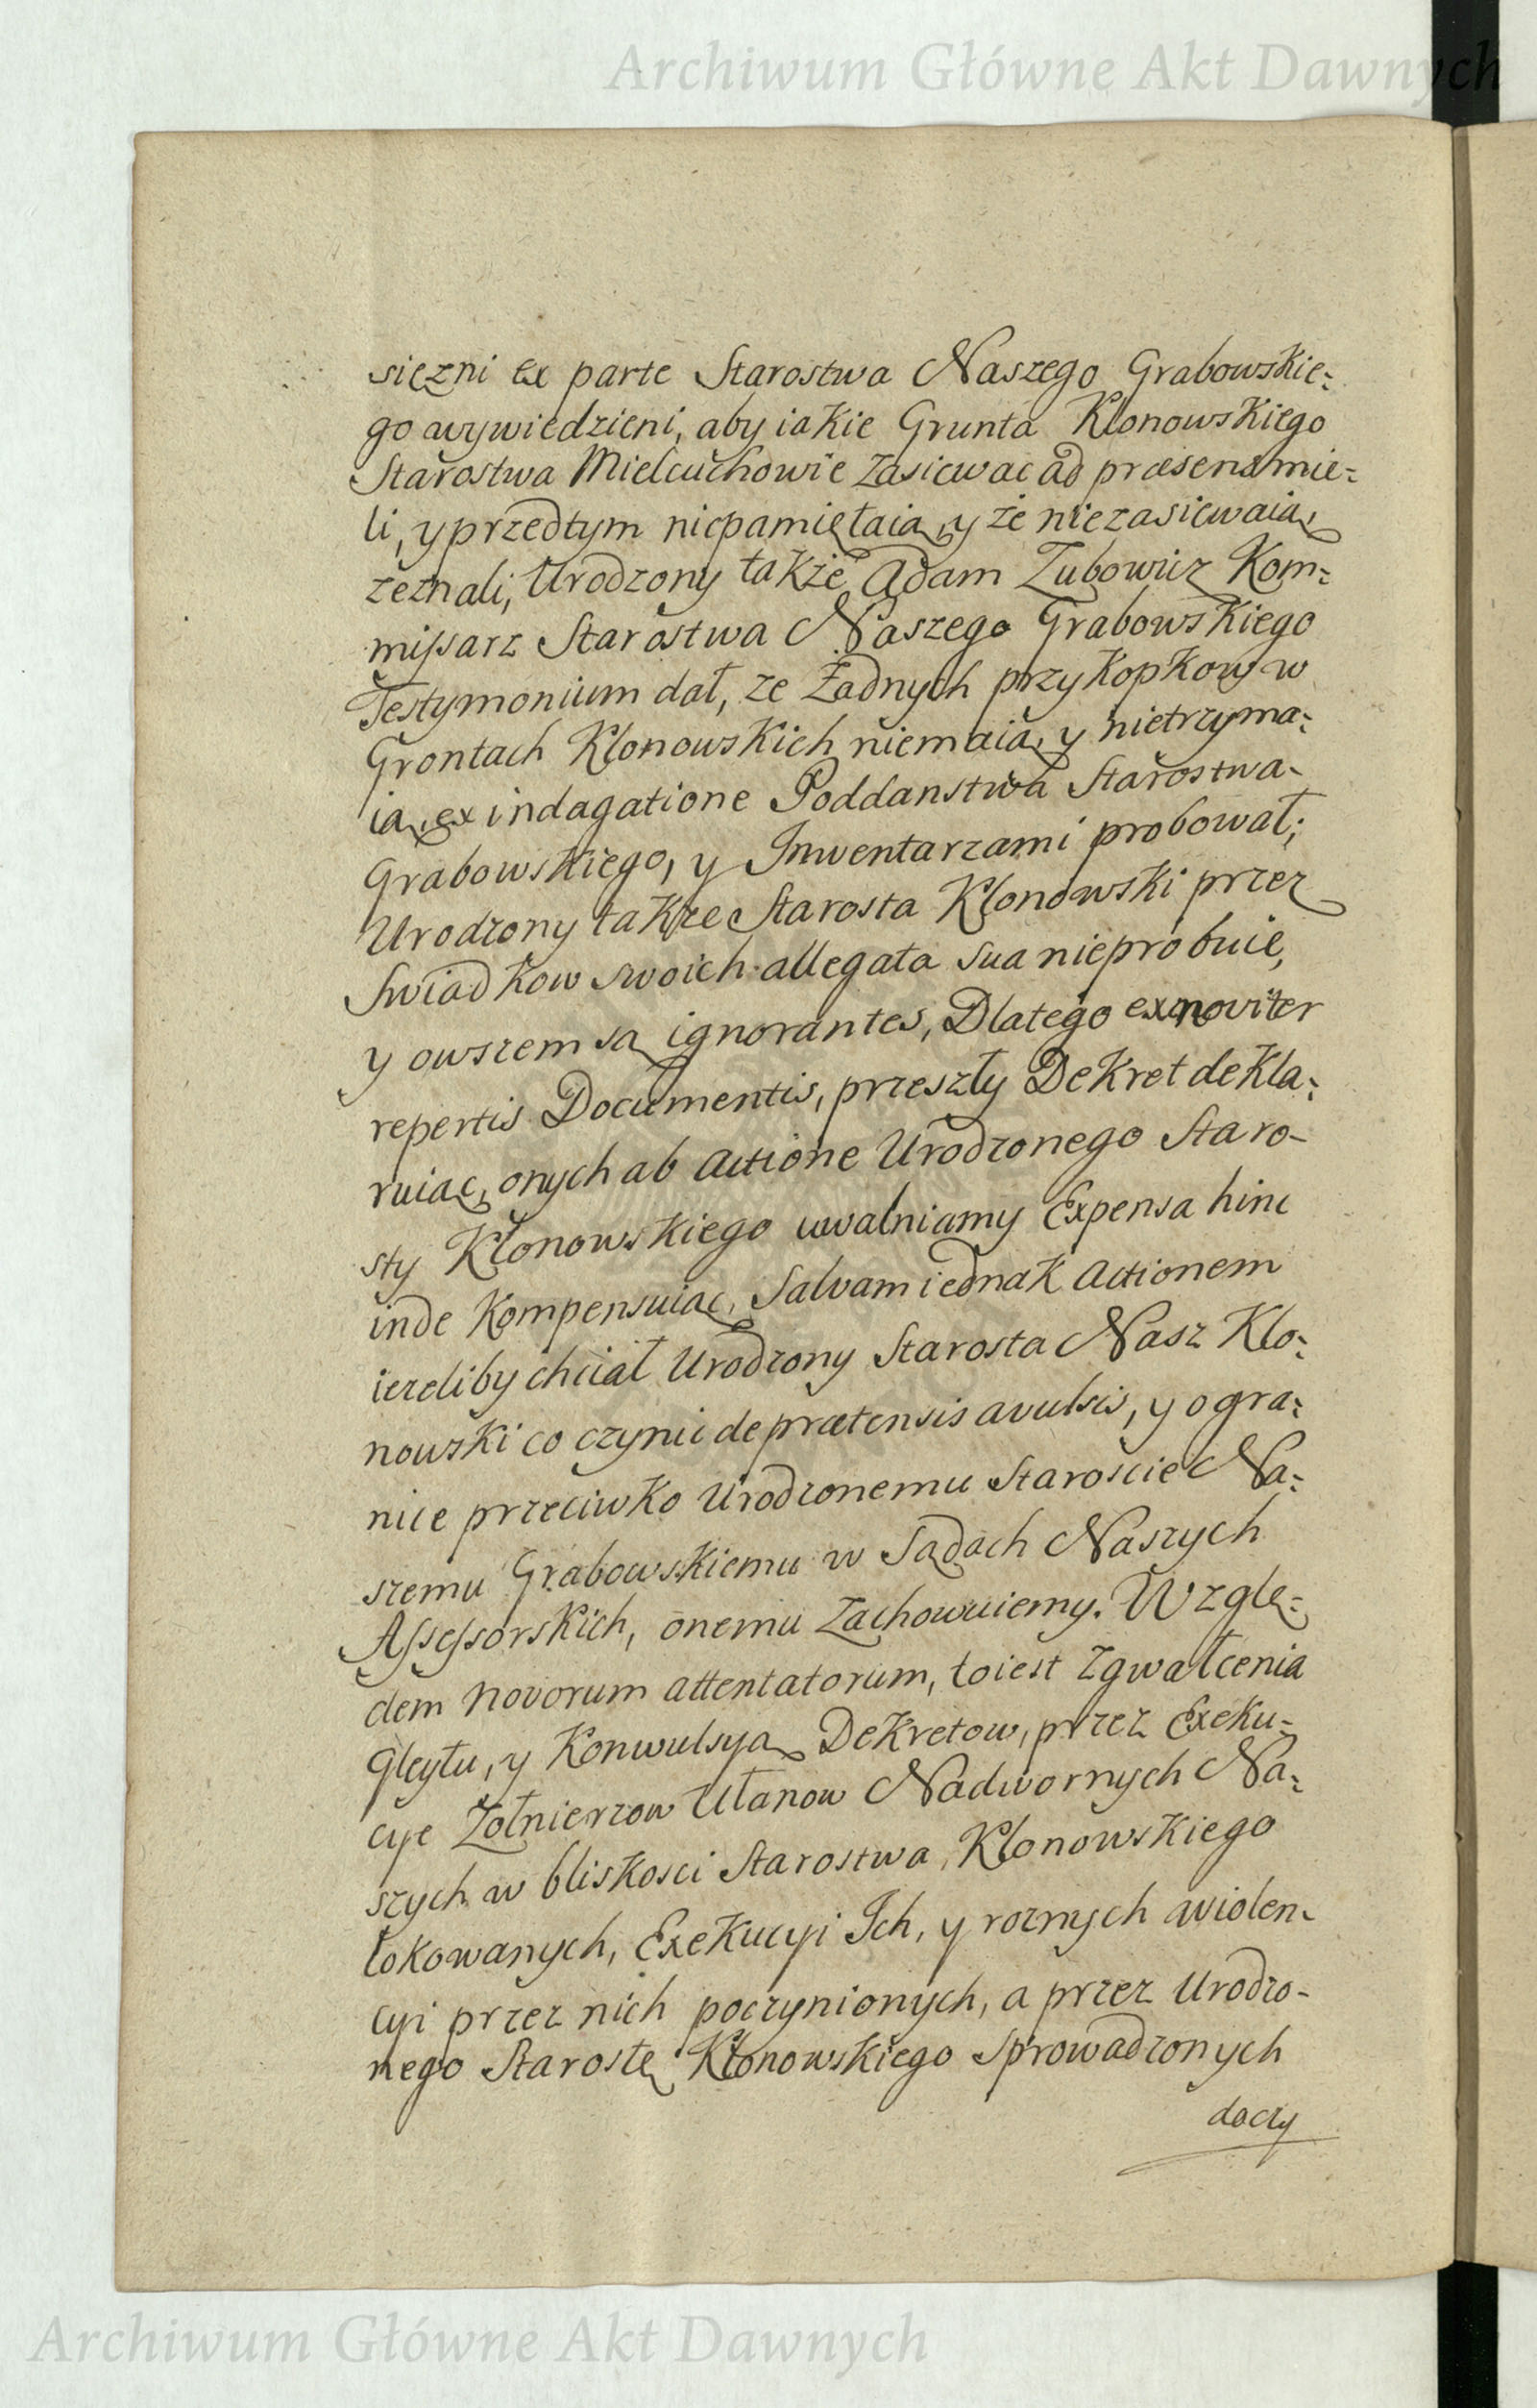 Archiwum Główne Akt Dawnych
siężni ex parte Starostwa Naszego Grabowskie=
go wywiedzieni, aby iakie Grunta Klonowskiego
Starostwa Mielcuchowie zasiewac ad præsens mie=
li, y przedtym niepamiętaią, y że niezasiewaią,
zeznali, Urodzony także Adam Zubowicz Kom=
missarz Starostwa Naszego Grabowskiego
Testymonium dał, ze Żadnych przykopkow w
Grontach Klonowskich niemaią, y nietrzyma=
ią, ex indagatione Poddanstwa Starostwa
Grabowskiego, y Inwentarzami probował;
Urodzony takze Starosta Klonowski przez
Swiadkow swoich allegata sua nieprobuie,
y owszem są ignorantes, Dlatego ex noviter
repertis Documentis, przeszły Dekret dekla=
ruiąc, onych ab actione Urodzonego Staro-
sty Kłonowskiego uwalniamy Expensa hinc
inde Kompensuiąc, Salvam iednak actionem
iezeliby chciał Urodzony Starosta Nasz Klo=
nowski co czynic de prætensis avulsis, y ogra=
nice przeciwko Urodzonemu Staroscie Na=
szemu Grabowskiemu w Sądach Naszych
Assessorskich, onemu zachowuiemy. Wzglę=
dem novorum attentatorum, toiest zgwałcenia
Gleytu, y Konwulsyą Dekretow, przez Exeku=
cye Żołnierzow Ułanow Nadwornych Na=
szych w bliskosci Starostwa Klonowskiego
lokowanych, Exekucyi Ich, y roznych wiolen=
cyi przez nich poczynionych, a przez Urodzo-
nego Starostę Kłonowskiego sprowadzonych
doczy
Archiwum Główne Akt Dawnych